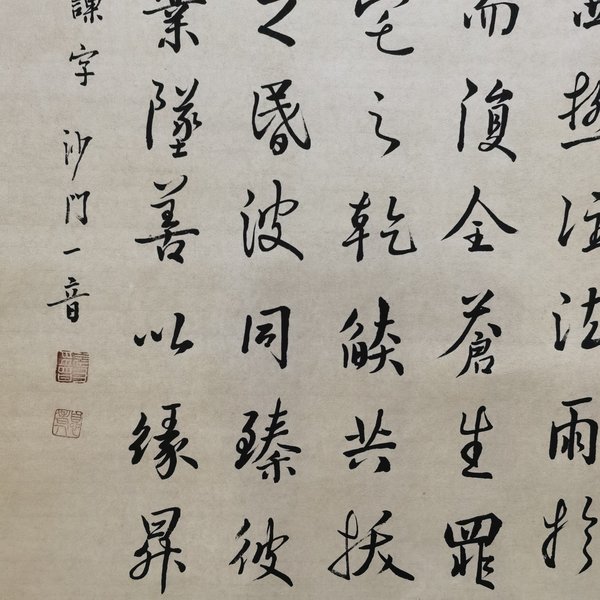 西極注法雨於
而復全蒼生罪
宅之乾燄共拔
之昬波同臻彼
業墜善以緣昇
課字 沙門一音